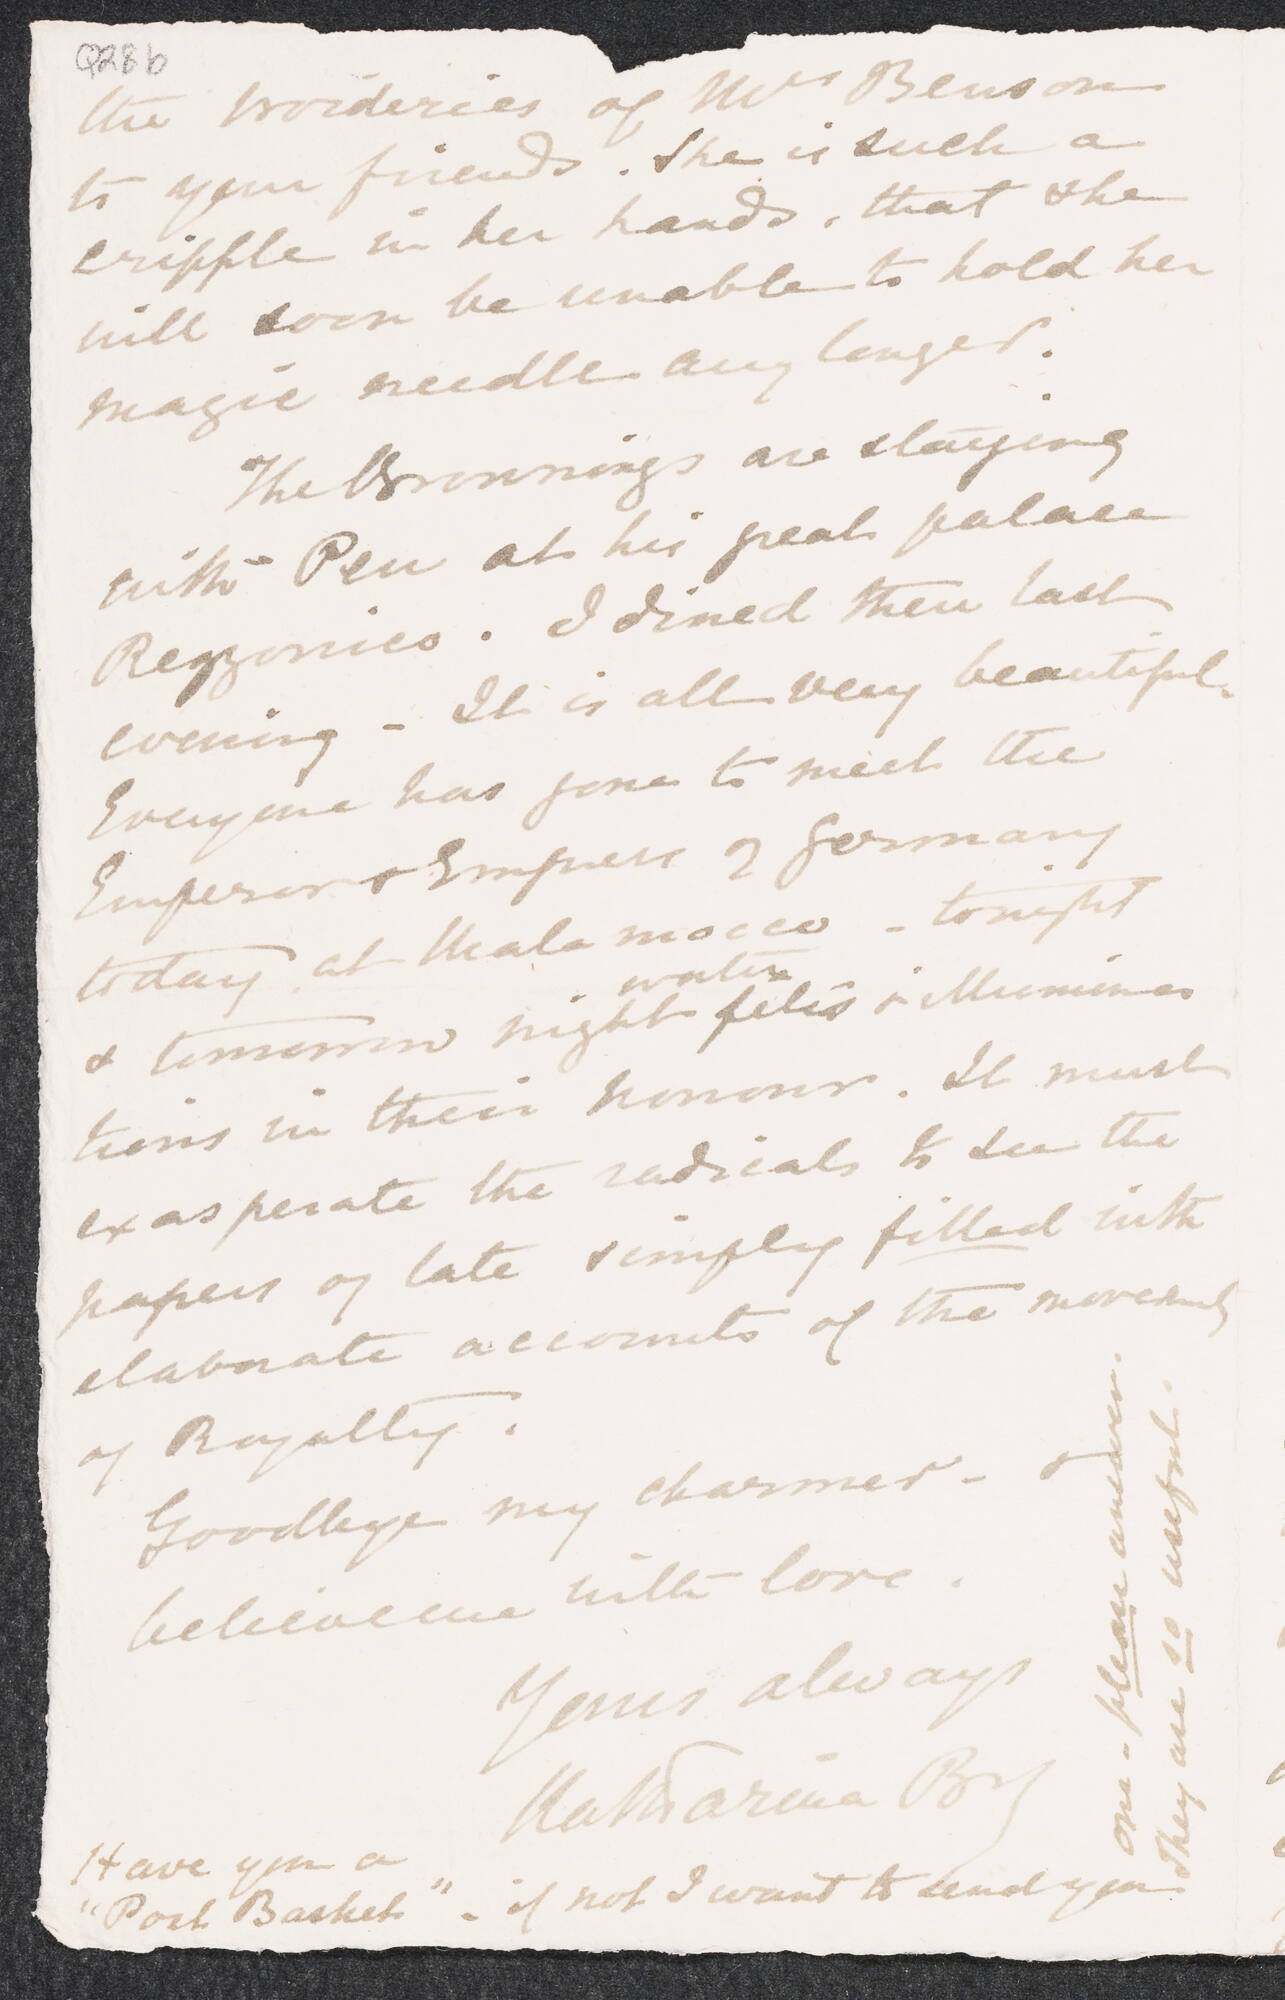 Q28b
the broideries of Mrs Benson
to your friends. She is such a
cripple in her hands, that she
will soon be unable to hold her
magic needle any longer.
The Brownings are staying
with Pen at his great palace
Rezzonico. I dined there last
evening - It is all very beautiful.
Everyone has gone to meet the
Emperor & Empress of Germany
today, at Malamocco - tonight
& tomorrow night water fêtes & illumina
tions in their honour. It must
exasperate the radicals to see the
papers of late simply filled with
elaborate accounts of the movements
of Royalty.
Goodbye my charmer - &
believe me with love.
Yours always
Katharine B
Have you a
"Post Basket" - if not I want to send you
one - please answer.
They are so useful.